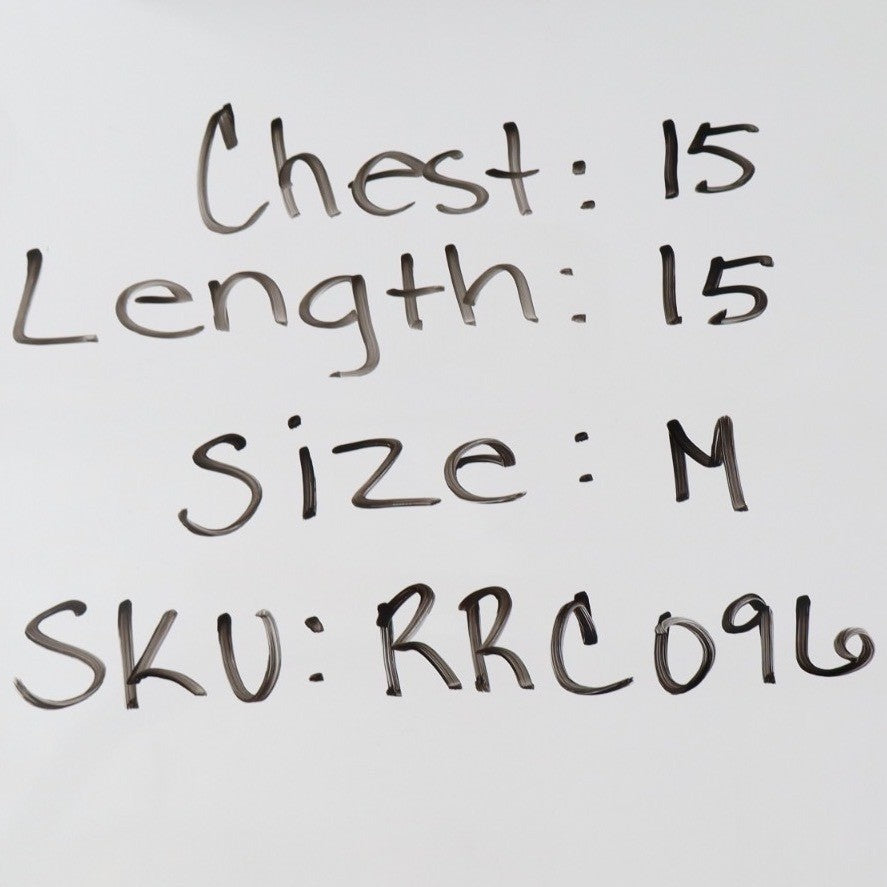 Chest: 15
Length: 15
Size: M
SKU: RRC096